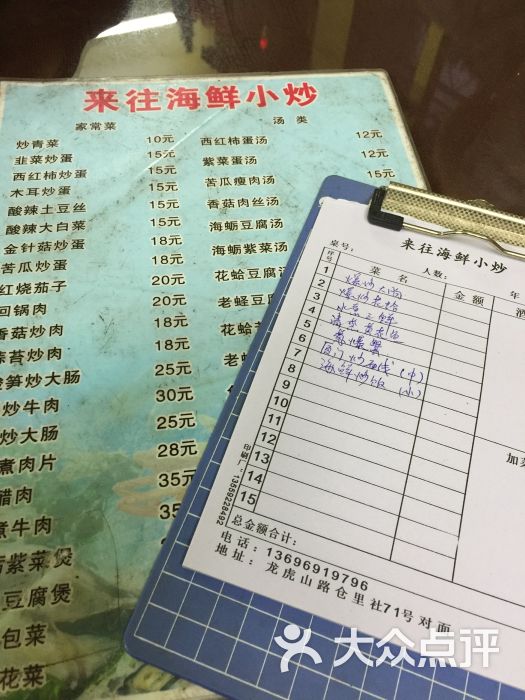 来往海鲜小炒
家常菜
汤 类
炒青菜 10元 西红柿蛋汤 12元
韭菜炒蛋 15元 紫菜蛋汤 12元
西红柿炒蛋 15元 苦瓜瘦肉汤 15元
木耳炒蛋 15元 香菇肉丝汤
酸辣土豆丝 15元 海蛎豆腐汤
酸辣大白菜 15元 海蛎紫菜汤
金针菇炒蛋 18元 花蛤豆腐汤
苦瓜炒蛋 18元 老蛏豆腐
红烧茄子 18元 花蛤
回锅肉 25元 老蛏
香菇炒肉 25元
蒜苔炒肉 25元
酸笋炒大肠 35元
炒牛肉 30元
炒大肠 25元
煮肉片 28元
腊肉 35元
煮牛肉 35
紫菜煲
豆腐煲
包菜
花菜
来往海鲜小炒
桌号: 人数: 年
序号 菜 名 金 额 酒
1
2
3
4
5
6
7 (中)
8 海鲜炒饭(小)
9
10
11
12
13
14
15
加菜
印刷厂: 13559228492
总金额合计:
电话: 13696919796
地址: 龙虎山路仓里社71号对面
大众点评